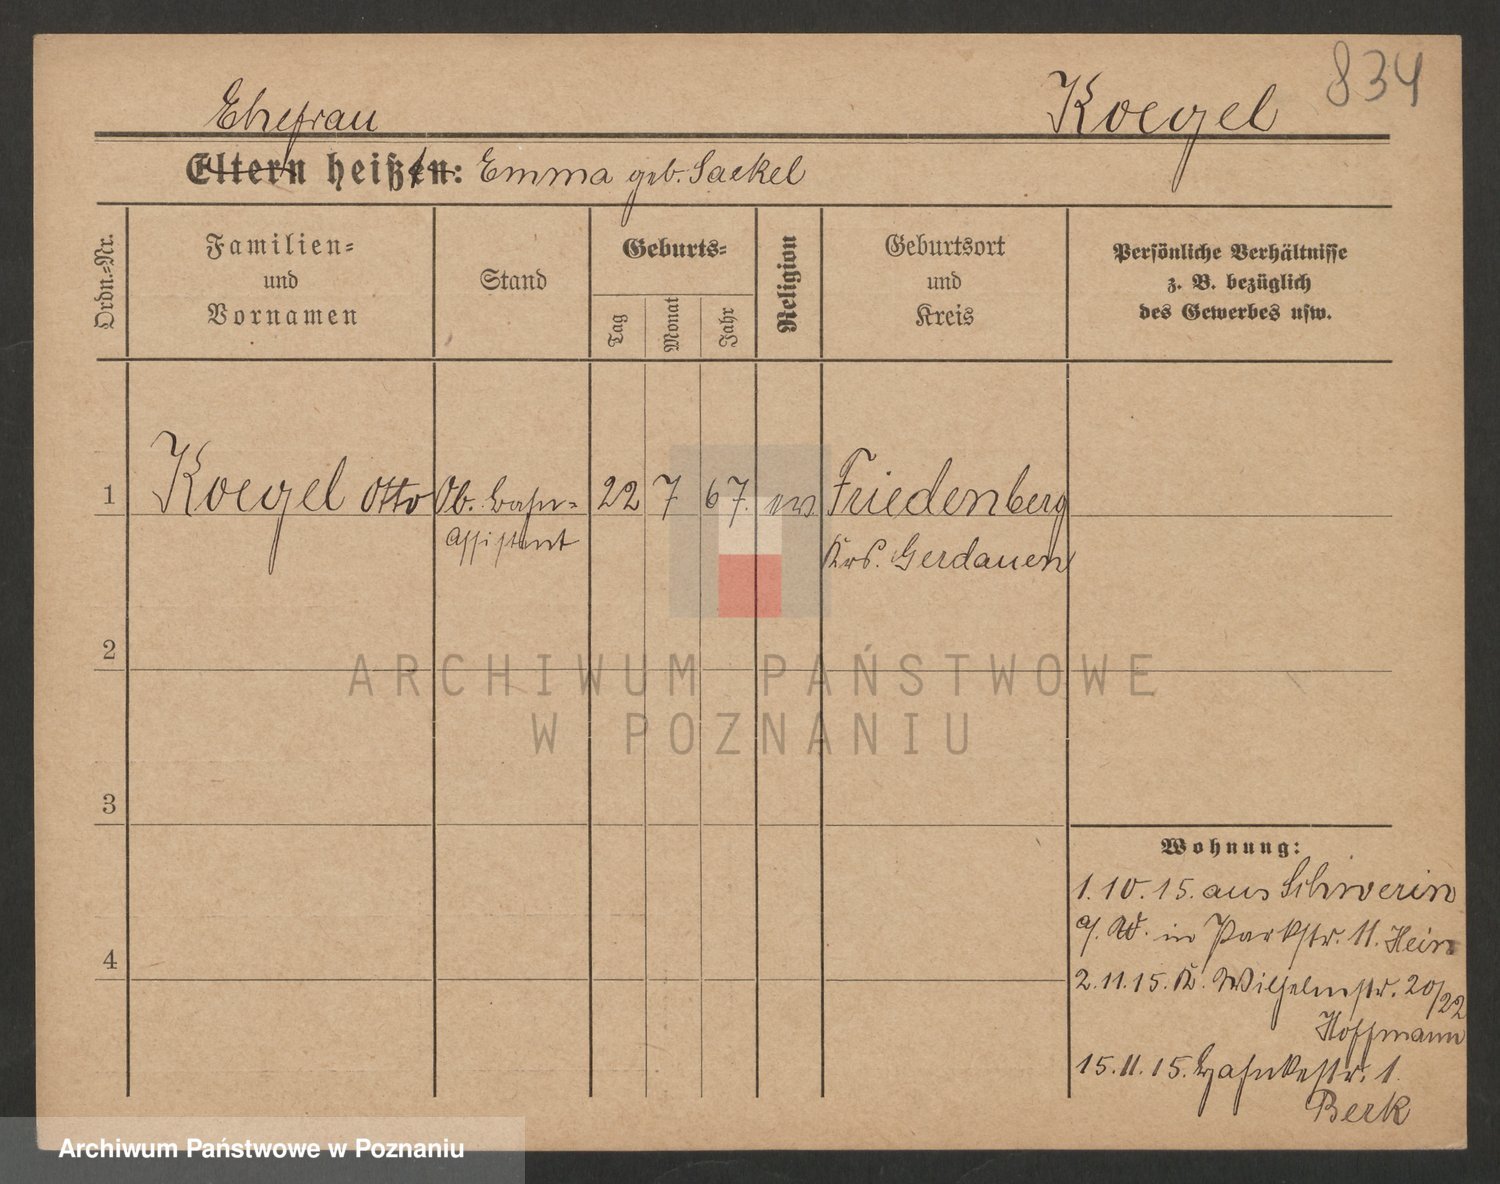 834
Ehefrau Koegel
Eltern heißen: Emma geb. Sackel
Ordn.=Nr.
Familien=
und
Vornamen
Stand
Geburts=
Tag
Monat
Jahr
Religion
Geburtsort
und
Kreis
Persönliche Verhältnisse
z. B. bezüglich
des Gewerbes usw.
1 Koegel Otto Ob. Bahn= 22 7 67. ev. Friedenberg
Assistent Krs. Gerdauen
2
ARCHIWUM PAŃSTWOWE
W POZNANIU
3
Wohnung:
1.10.15. aus Schwerin
a/W. in Parkstr. 11. Hein
4
2.11.15. K. Wilhelmstr. 20/22
Hoffmann
15.11.15. Hahnkestr. 1.
Berk
Archiwum Państwowe w Poznaniu